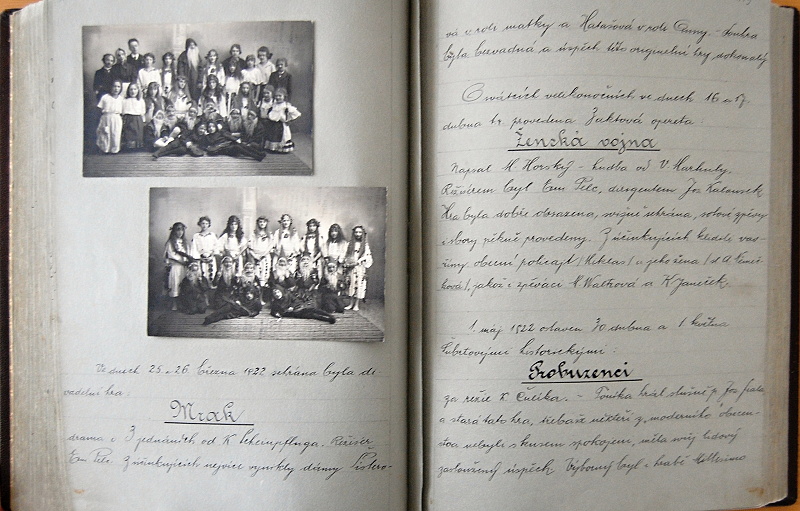 Ve dnech 25. a 26. března 1922 sehrána byla di-
vadelní hra:
Mrak
drama o 3 jednáních od K. Scheinpfluga. Režisér
Em. Pelc. Z účinkujících nejvíce vynikly dámy
vá v roli matky a Hatašová v roli Anny. – Souhra
byla bezvadná a úspěch této originelní hry dokonalý
O svátcích velikonočních ve dnech 16 a 17.
dubna t.r. provedena 3 aktová opereta:
Ženská vojna
Napsal M. Horský – hudba od V. Markuly.
Režisérem byl Em. Pelc, dirigentem Jos. Kalousek
Hra byla dobře obsazena, svižně sehrána, solové zpěvy
i sbory pěkně provedeny. Z účinkujících kladli
obecní policajt / Miklas / a jeho žena /
jakož i zpěváci M. Watková a K. Janeček.
1. máj 1922 oslaven 30 dubna a 1 května
Šubrtovými historickými:
Probuzenci
za režie K. Čulíka. – Toníka hrál slušně p. Jos.
a stará tato hra, třebaže někteří z moderního obecen-
stva nebyli s kusem spokojeni, měla svůj
zasloužený úspěch. Výborný byl i hrabě